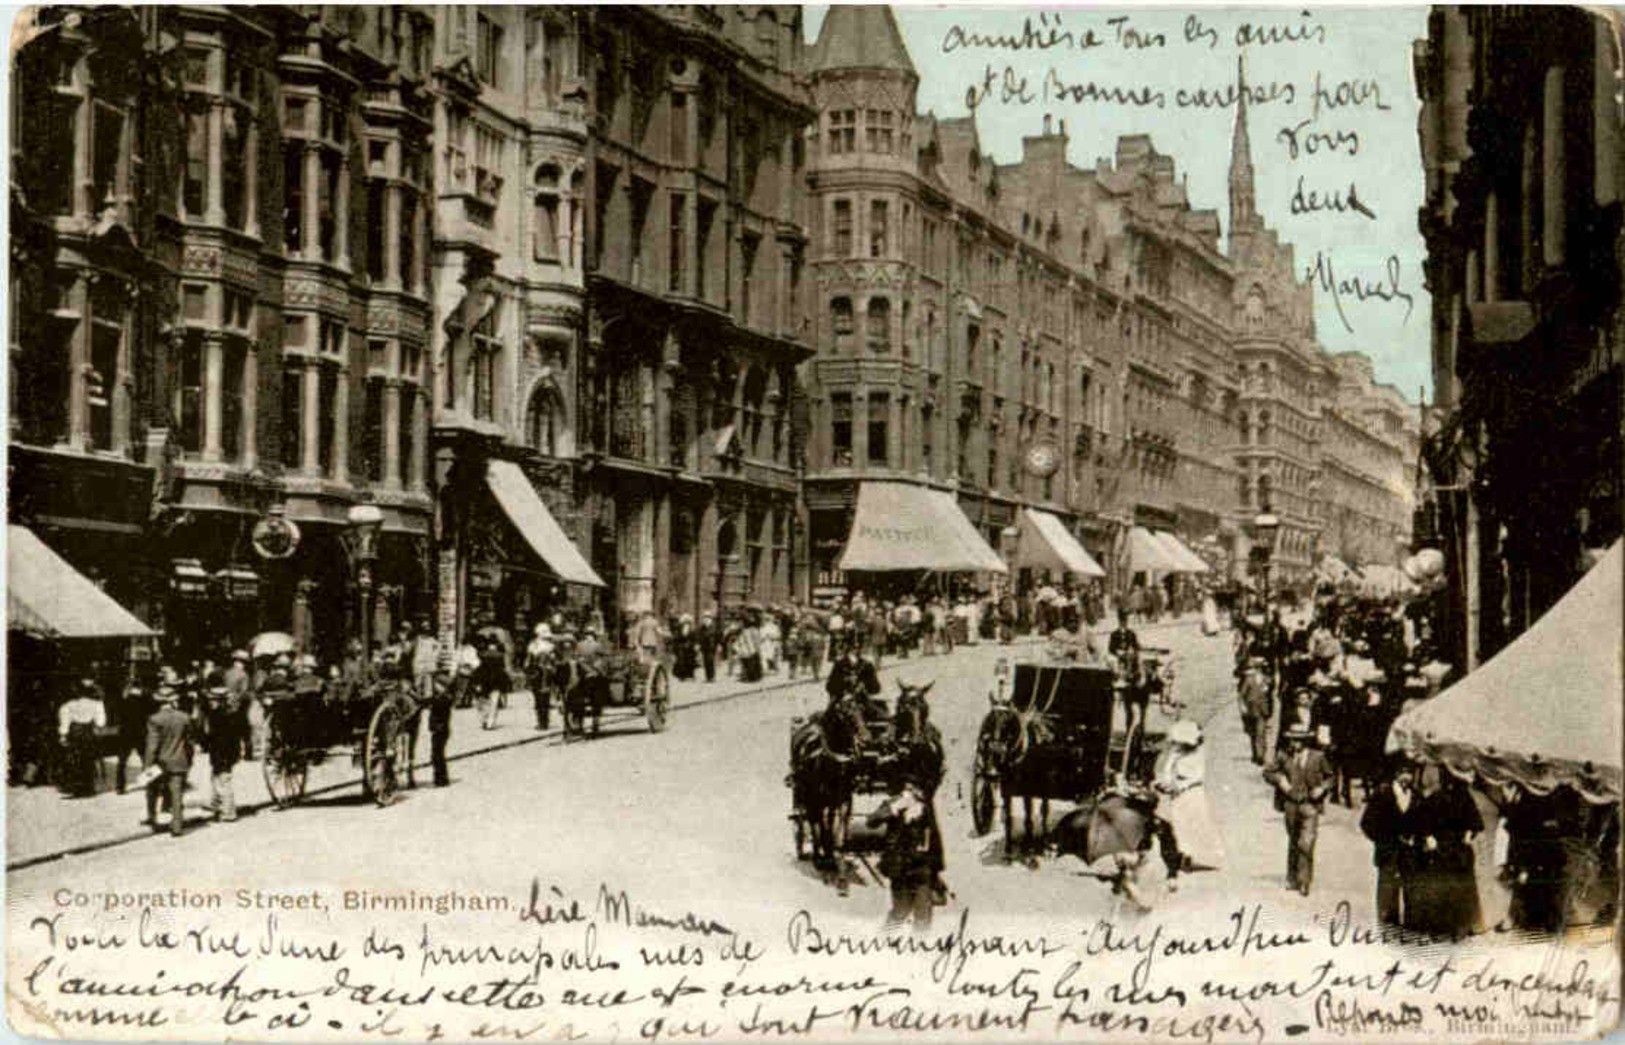 amitiés a Tous les amis
et de Bonnes caresses pour
vous
deux
Marcel
Corporation Street, Birmingham.
chère Maman
Voici la vue d'une des principales rues de Birmingham Aujourd'hui
l'animation dans cette rue est énorme - toutes les rues montent et descendent
comme ci - il y en a qui sont vraiment - Réponds moi
Birmingham.